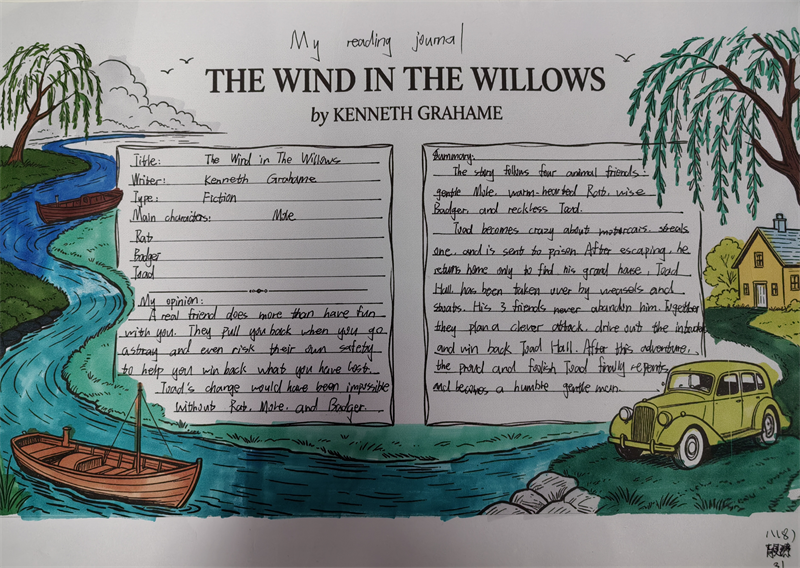 My reading journal
THE WIND IN THE WILLOWS
by KENNETH GRAHAME
Title: The Wind in The Willows
Writer: Kenneth Grahame
Type: Fiction
Main characters: Mole
Rat
Badger
Toad
My opinion:
A real friend does more than have fun
with you. They pull you back when you go
astray and even risk their own safety
to help you win back what you have lost.
Toad's change would have been impossible
without Rat, Mole, and Badger.
Summary:
The story follows four animal friends
gentle Mole, warm-hearted Rat, wise
Badger and reckless Toad.
Toad becomes crazy about motorcars, steals
one, and is sent to prison. After escaping, he
returns home only to find his grand house, Toad
Hall has been taken over by weasels and
stoats. His 3 friends never abandon him. Together
they plan a clever attack, drive out the
and win back Toad Hall. After this adventure,
the proud and foolish Toad finally repents
and becomes a humble gentle man.
31